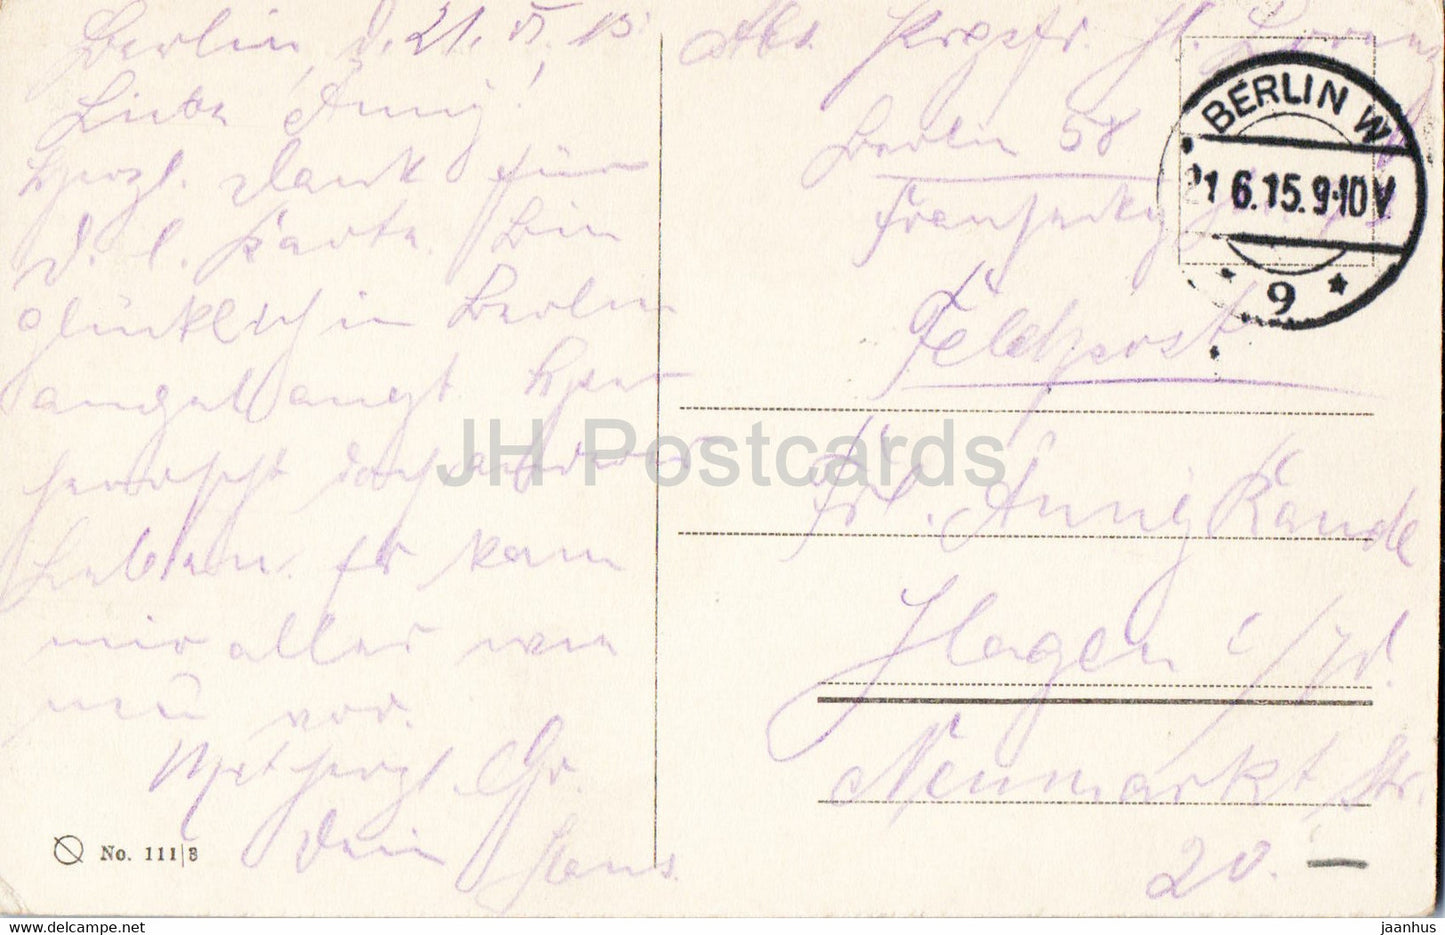 Berlin, d. 21. VI. 15.
Liebe Anny!
Herzl. Dank für
d. l. Karte. Bin
glücklich in Berlin
angelangt. Hier
herrscht doch anderes
Leben. Es kam
mir alles wie
neu vor.
Mit herzl. Gr.
Dein Hans
No. 111/8
Abs.
Berlin 58
Feldpost
Frl. Anny Kaude
Hagen i/W.
Neumarkt Str.
20.
BERLIN W
21.6.15.9-10V
* 9 *
JH Postcards
www.delcampe.net
jaanhus